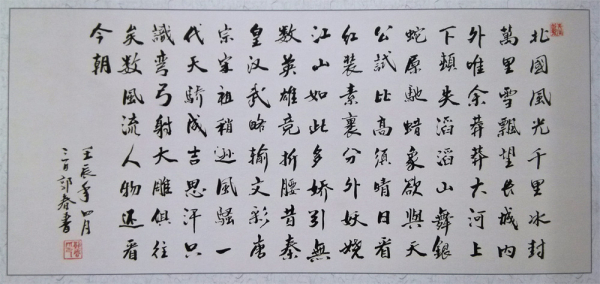 北國風光千里冰封
萬里雪飄望长城内
外唯余莽莽大河上
下頓失滔滔山舞銀
蛇原馳蜡象欲與天
公試比高須晴日看
红装素裹分外妖娆
江山如此多嬌引無
数英雄竞折腰昔秦
皇汉武略输文彩唐
宗宋祖稍逊風騷一
代天驕成吉思汗只
識弯弓射大雕俱往
矣数風流人物还看
今朝
壬辰年四月
郭春書